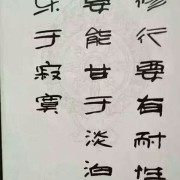 修行要有耐性
要能甘于淡泊
乐于寂寞